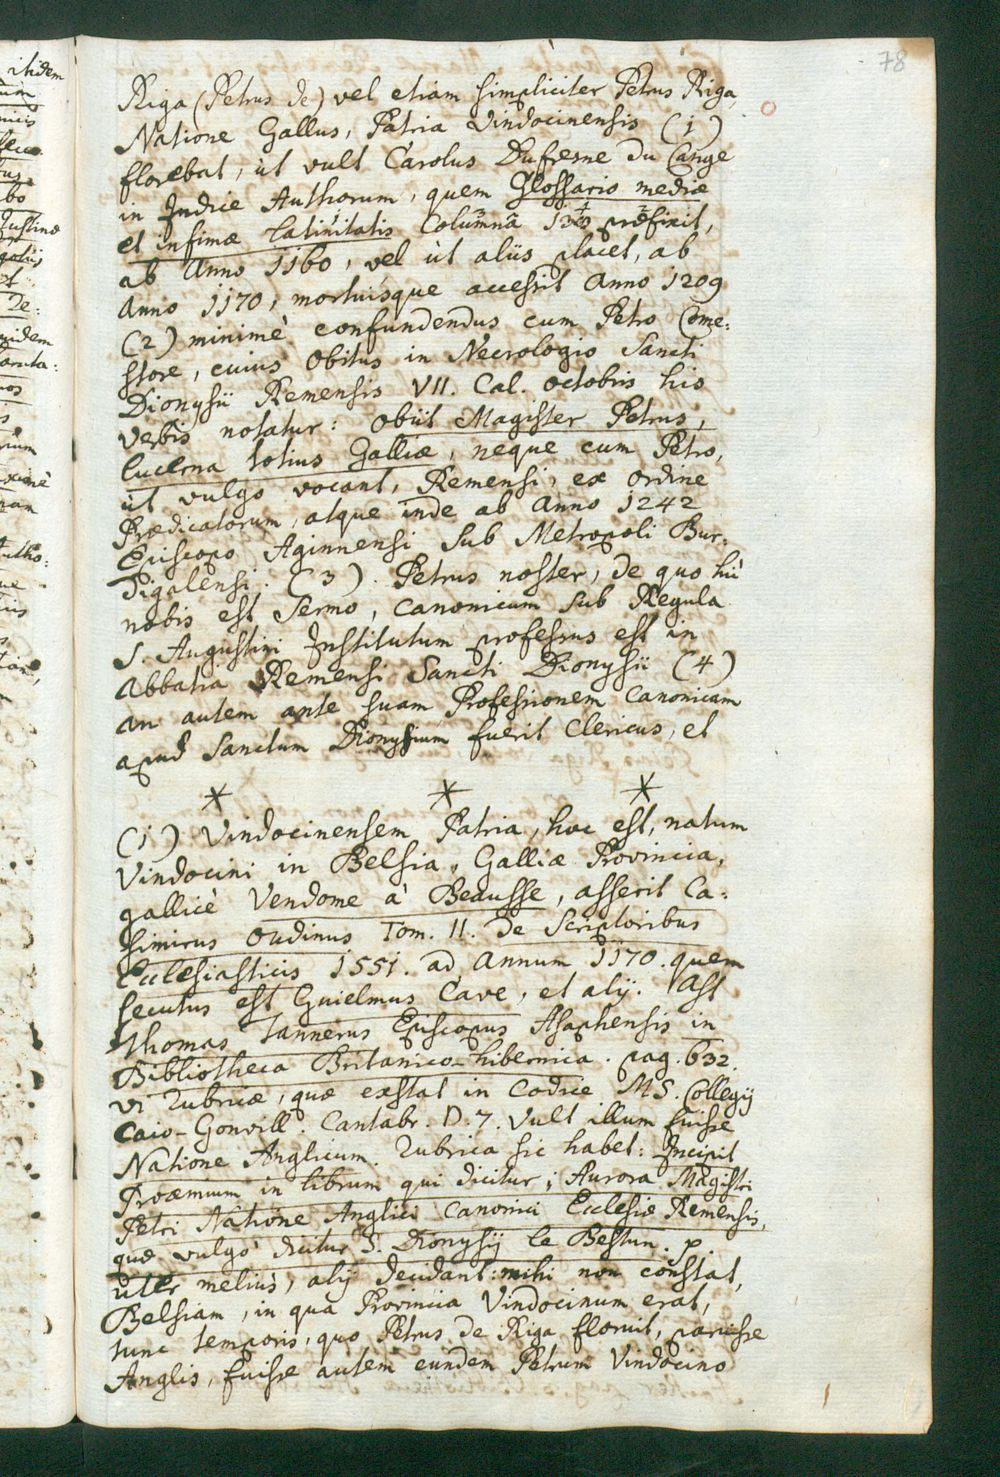 78
Riga (Petrus de) vel etiam simpliciter Petrus Riga,
Natione Gallus, Patria Vindocinensis (1)
florebat, ut vult Carolus Dufresne Du Cange
in Indice Authorum, quem Glossario mediæ
et infimæ Latinitatis Columnâ præfixit,
ab Anno 1160, vel ut aliis placet, ab
Anno 1170, mortuisque accessit Anno 1209
(2) minimè confundendus cum Petro Come:
store, cuius obitus in Necrologio Sancti
Dionysii Remensis VII. Cal. octobris his
verbis notatur: obiit Magister Petrus,
lucerna totius Galliæ, neque cum Petro,
ut vulgo vocant, Remensi, ex ordine
Prædicatorum, atque inde ab Anno 1242
Episcopo Aginnensi sub Metropoli Bur:
digalensi. (3). Petrus noster, de quo hic
nobis est sermo, Canonicum sub Regula
S. Augustini Institutum professus est in
Abbatia Remensi Sancti Dionysii (4)
an autem ante suam Professionem Canonicam
apud Sanctum Dionysium fuerit Clericus, et
(1) Vindocinensem Patria, hoc est, natum
Vindocini in Belsia, Galliæ Provincia,
gallicè Vendome à Beausse, asserit Ca:
simirus Oudinus Tom. II. de Scriptoribus
Ecclesiasticis 1551. ad Annum 1170. quem
secutus est Guielmus Cave, et alij. Ast
Thomas Tannerus Episcopus Asaphensis in
Bibliotheca Britanico-hibernica. pag. 632.
vi rubricæ, quæ exstat in Codice MS. Collegij
Caio-Gonvill. Cantabr. D. 7. vult illum fuisse
Natione Anglicum. rubrica sic habet: Incipit
Proæmium in librum qui dicitur; Aurora Magistri
Petri Natione Anglici Canonici Ecclesiæ Remensis,
quæ vulgò dicitur S. Dionysij le Bestun. p.
uter melius, alij decidant: mihi non constat,
Belsiam, in qua Provincia Vindocinum erat,
tunc temporis, quo Petrus de Riga floruit, paruisse
Anglis, fuisse autem eundem Petrum Vindocino